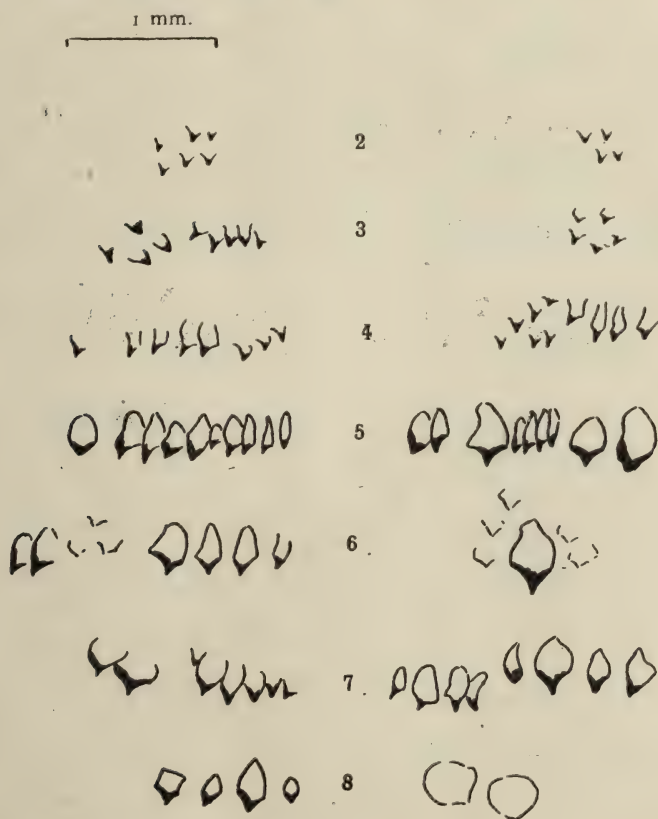 1 mm.
2
3
4
5
6
7
8